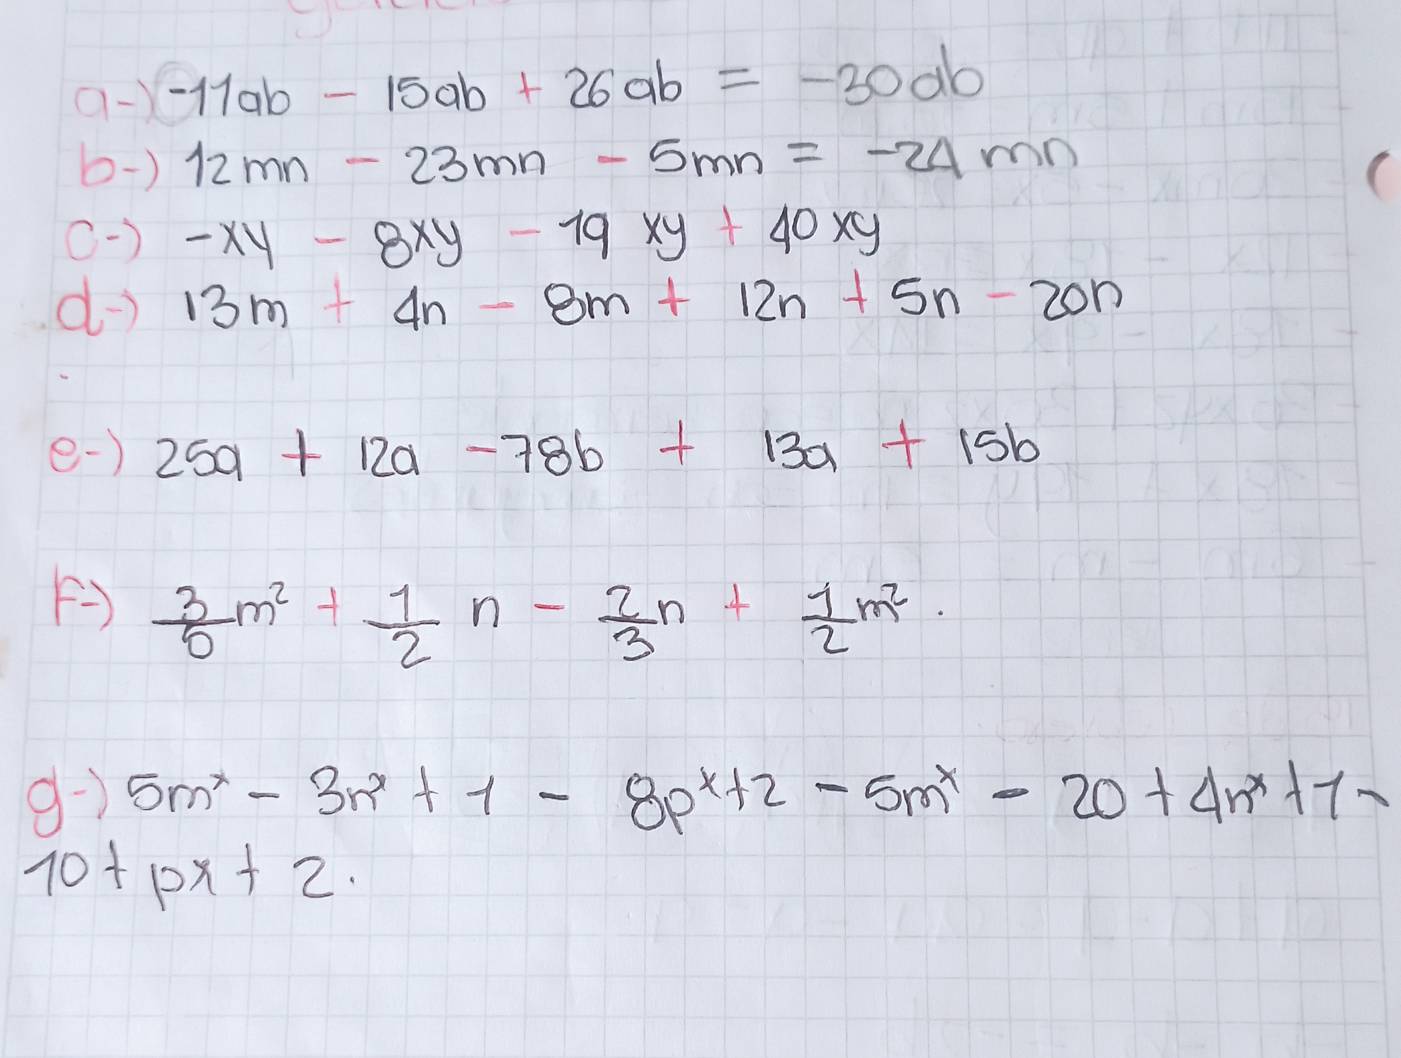 a-) -11ab - 15ab + 26ab = -30ab
b-) 12mn - 23mn - 5mn = -24mn
c-) -xy - 8xy - 19xy + 40xy
d-) 13m + 4n - 8m + 12n + 5n - 20n
e-) 25a + 12a - 78b + 13a + 15b
F-) 3/5 m² + 1/2 n - 2/3 n + 1/2 m².
g-) 5mˣ - 3nˣ + 1 - 8pˣ + 2 - 5mˣ - 20 + 4nˣ + 1 -
10 + px + 2.